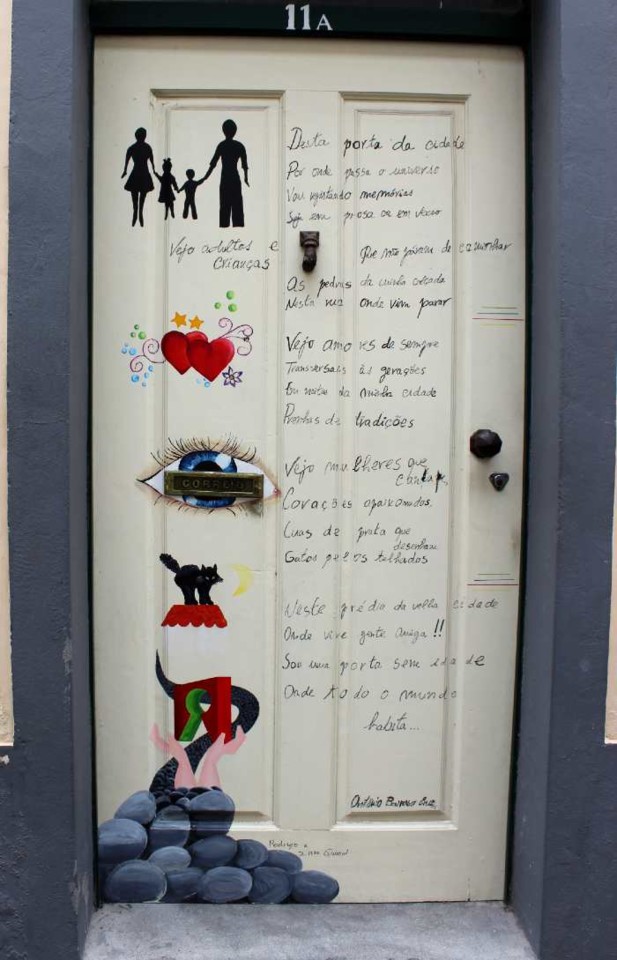 11A
Desta porta da cidade
Por onde passa o universo
Vou registando memórias
Seja em prosa ou em verso
Vejo adultos e
Crianças
Que não param de caminhar
As pedras da minha calçada
Nesta rua onde vêm parar
Vejo amores de sempre
Transversais às gerações
Em noites da minha cidade
de tradições
Vejo mulheres que
Corações apaixonados.
CORREIO
Luas de prata que
desenham
Gatos pelos telhados
Neste prédio da velha cidade
Onde vive gente amiga!!
Sou uma porta sem idade
Onde todo o mundo
habita...
António Barroso Cruz
Rodrigo